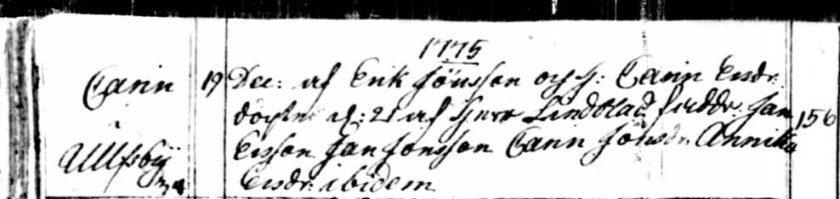 1775
Carin 19 Dec: af Erik Jönsson och h: Carin Ersdr:
döptes d: 21 af Herr Lindblad faddr: Jan 156
Ullfsby Ersson Jan Jonsson Carin Jönsdr Annika
Ersdr: ibidem